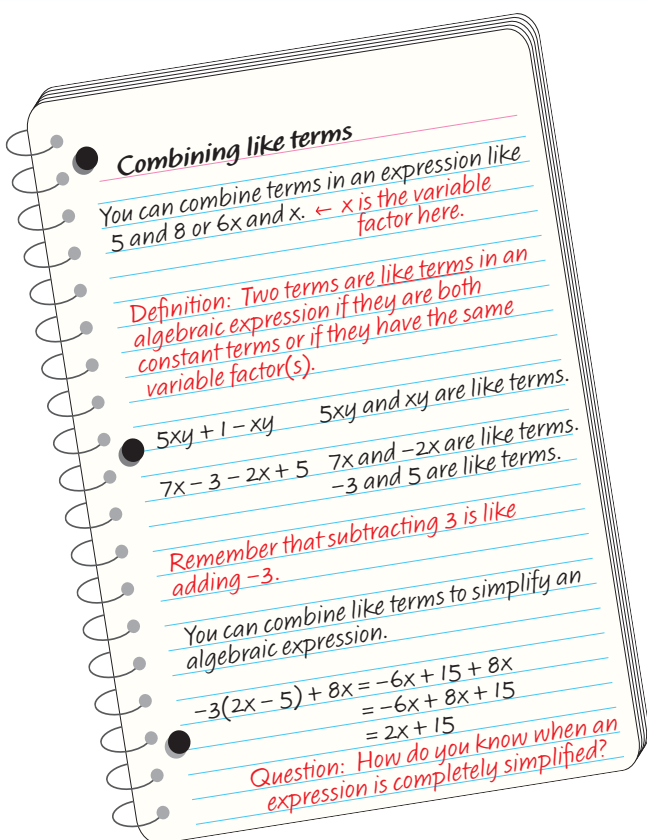 Combining like terms
You can combine terms in an expression like
5 and 8 or 6x and x. ← x is the variable
factor here.
Definition: Two terms are like terms in an
algebraic expression if they are both
constant terms or if they have the same
variable factor(s).
5xy + 1 − xy 5xy and xy are like terms.
7x − 3 − 2x + 5 7x and −2x are like terms.
−3 and 5 are like terms.
Remember that subtracting 3 is like
adding −3.
You can combine like terms to simplify an
algebraic expression.
−3(2x − 5) + 8x = −6x + 15 + 8x
= −6x + 8x + 15
= 2x + 15
Question: How do you know when an
expression is completely simplified?